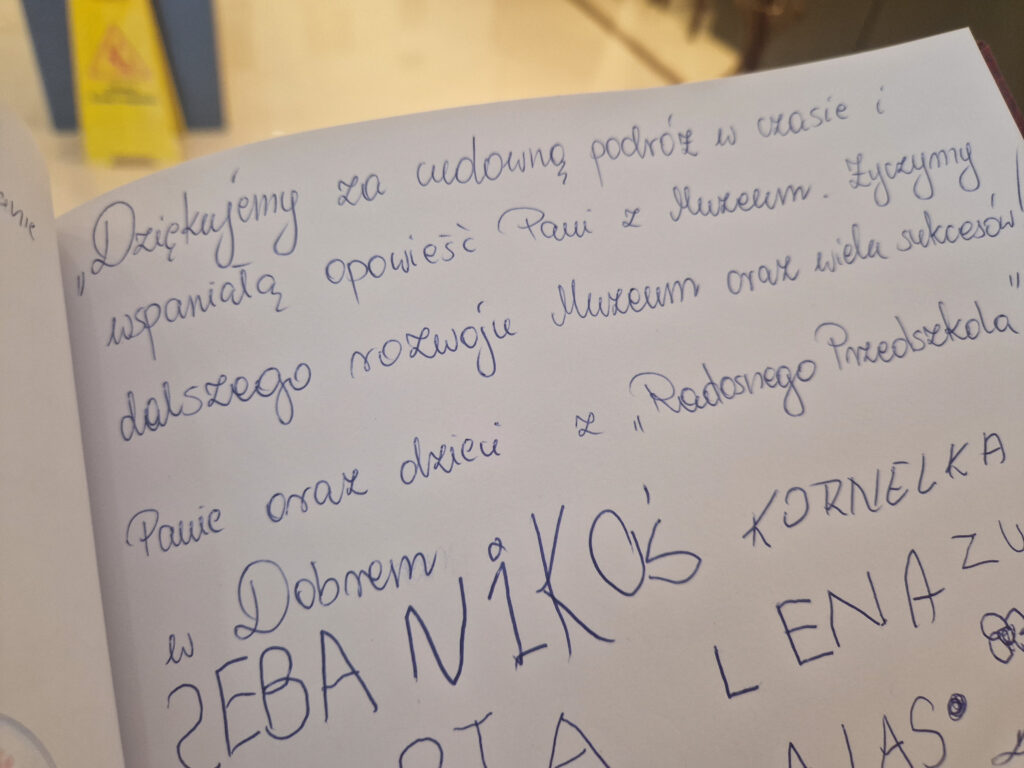 „Dziękujemy za cudowną podróż w czasie i
wspaniałą opowieść Pani z Muzeum. Życzymy
dalszego rozwoju Muzeum oraz wielu sukcesów!
Panie oraz dzieci z „Radosnego Przedszkola”
w Dobrem
SEBA NIKOŚ KORNELKA
LENA